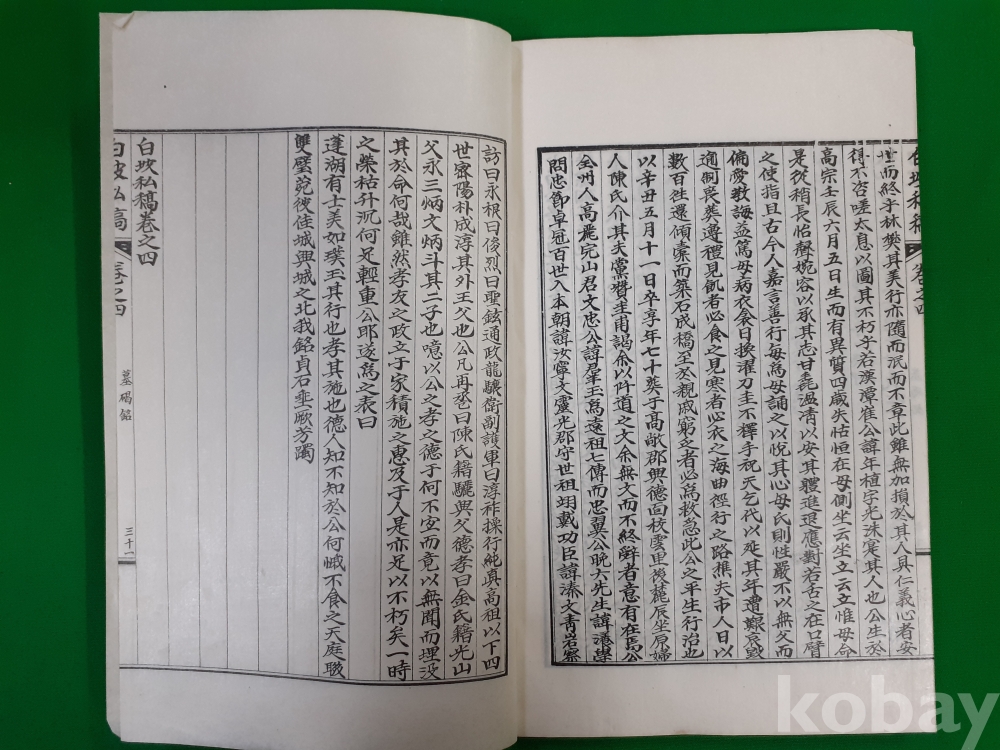 世而終乎林樊其美行亦隨而泯而不章此雖無加損於其人具仁義心者安
得不咨嗟太息以圖其不朽乎若漢潭崔公諱年植字光洙寔其人也公生於
高宗壬辰六月五日生而有異質四歲失怙恒在母側坐云坐立云立惟母命
是從稍長怡聲婉容以承其志甘毳溫凊以安其軆進退應對若舌之在口臂
之使指且古今人嘉言善行每爲母誦之以悅其心母氏則性嚴不以無父而
偏愛敎誨益篤母病衣食日換濯刀圭不釋手祝天乞代以延其年遭艱哀毁
適制喪葬遵禮見飢者必食之見寒者必衣之海曲徑行之路樵夫市人日以
數百徃還傾橐而築石成橋至於親戚窮乏者必爲救急此公之平生行治也
以辛丑五月十一日卒享年七十葬于高敞郡興德面校雲里後麓辰坐原婦
人陳氏介其夫黨贊圭甫謁余以阡道之文余無文而不終辭者意有在焉公
全州人高麗完山君文忠公諱群玉爲遠祖七傳而忠翼公晩六先生諱瀁學
問忠節卓冠百世入本朝諱汝寧文靈光郡守世祖翊戴功臣諱溱文靑岩察
訪曰永根曰俊烈曰聖鉉通政龍驤衛副護軍曰淳祚操行純眞高祖以下四
世密陽朴成淳其外王父也公凡再娶曰陳氏籍驪興父德孝曰金氏籍光山
父永三炳文炳斗其二子也噫以公之孝之德于何不宜而竟以無聞而埋没
其於命何哉雖然孝友之政立于家積施之惠及于人是亦足以不朽矣一時
之榮枯升沉何足輕重公耶遂爲之表曰
蓬湖有士美如璞玉其行也孝其施也德人知不知於公何慽不食之天庭聯
雙璧兢彼佳城興城之北我銘貞石垂厥芳躅
白坡私稿卷之四
白坡私稿
卷之四
墓碣銘
三十一
kobay